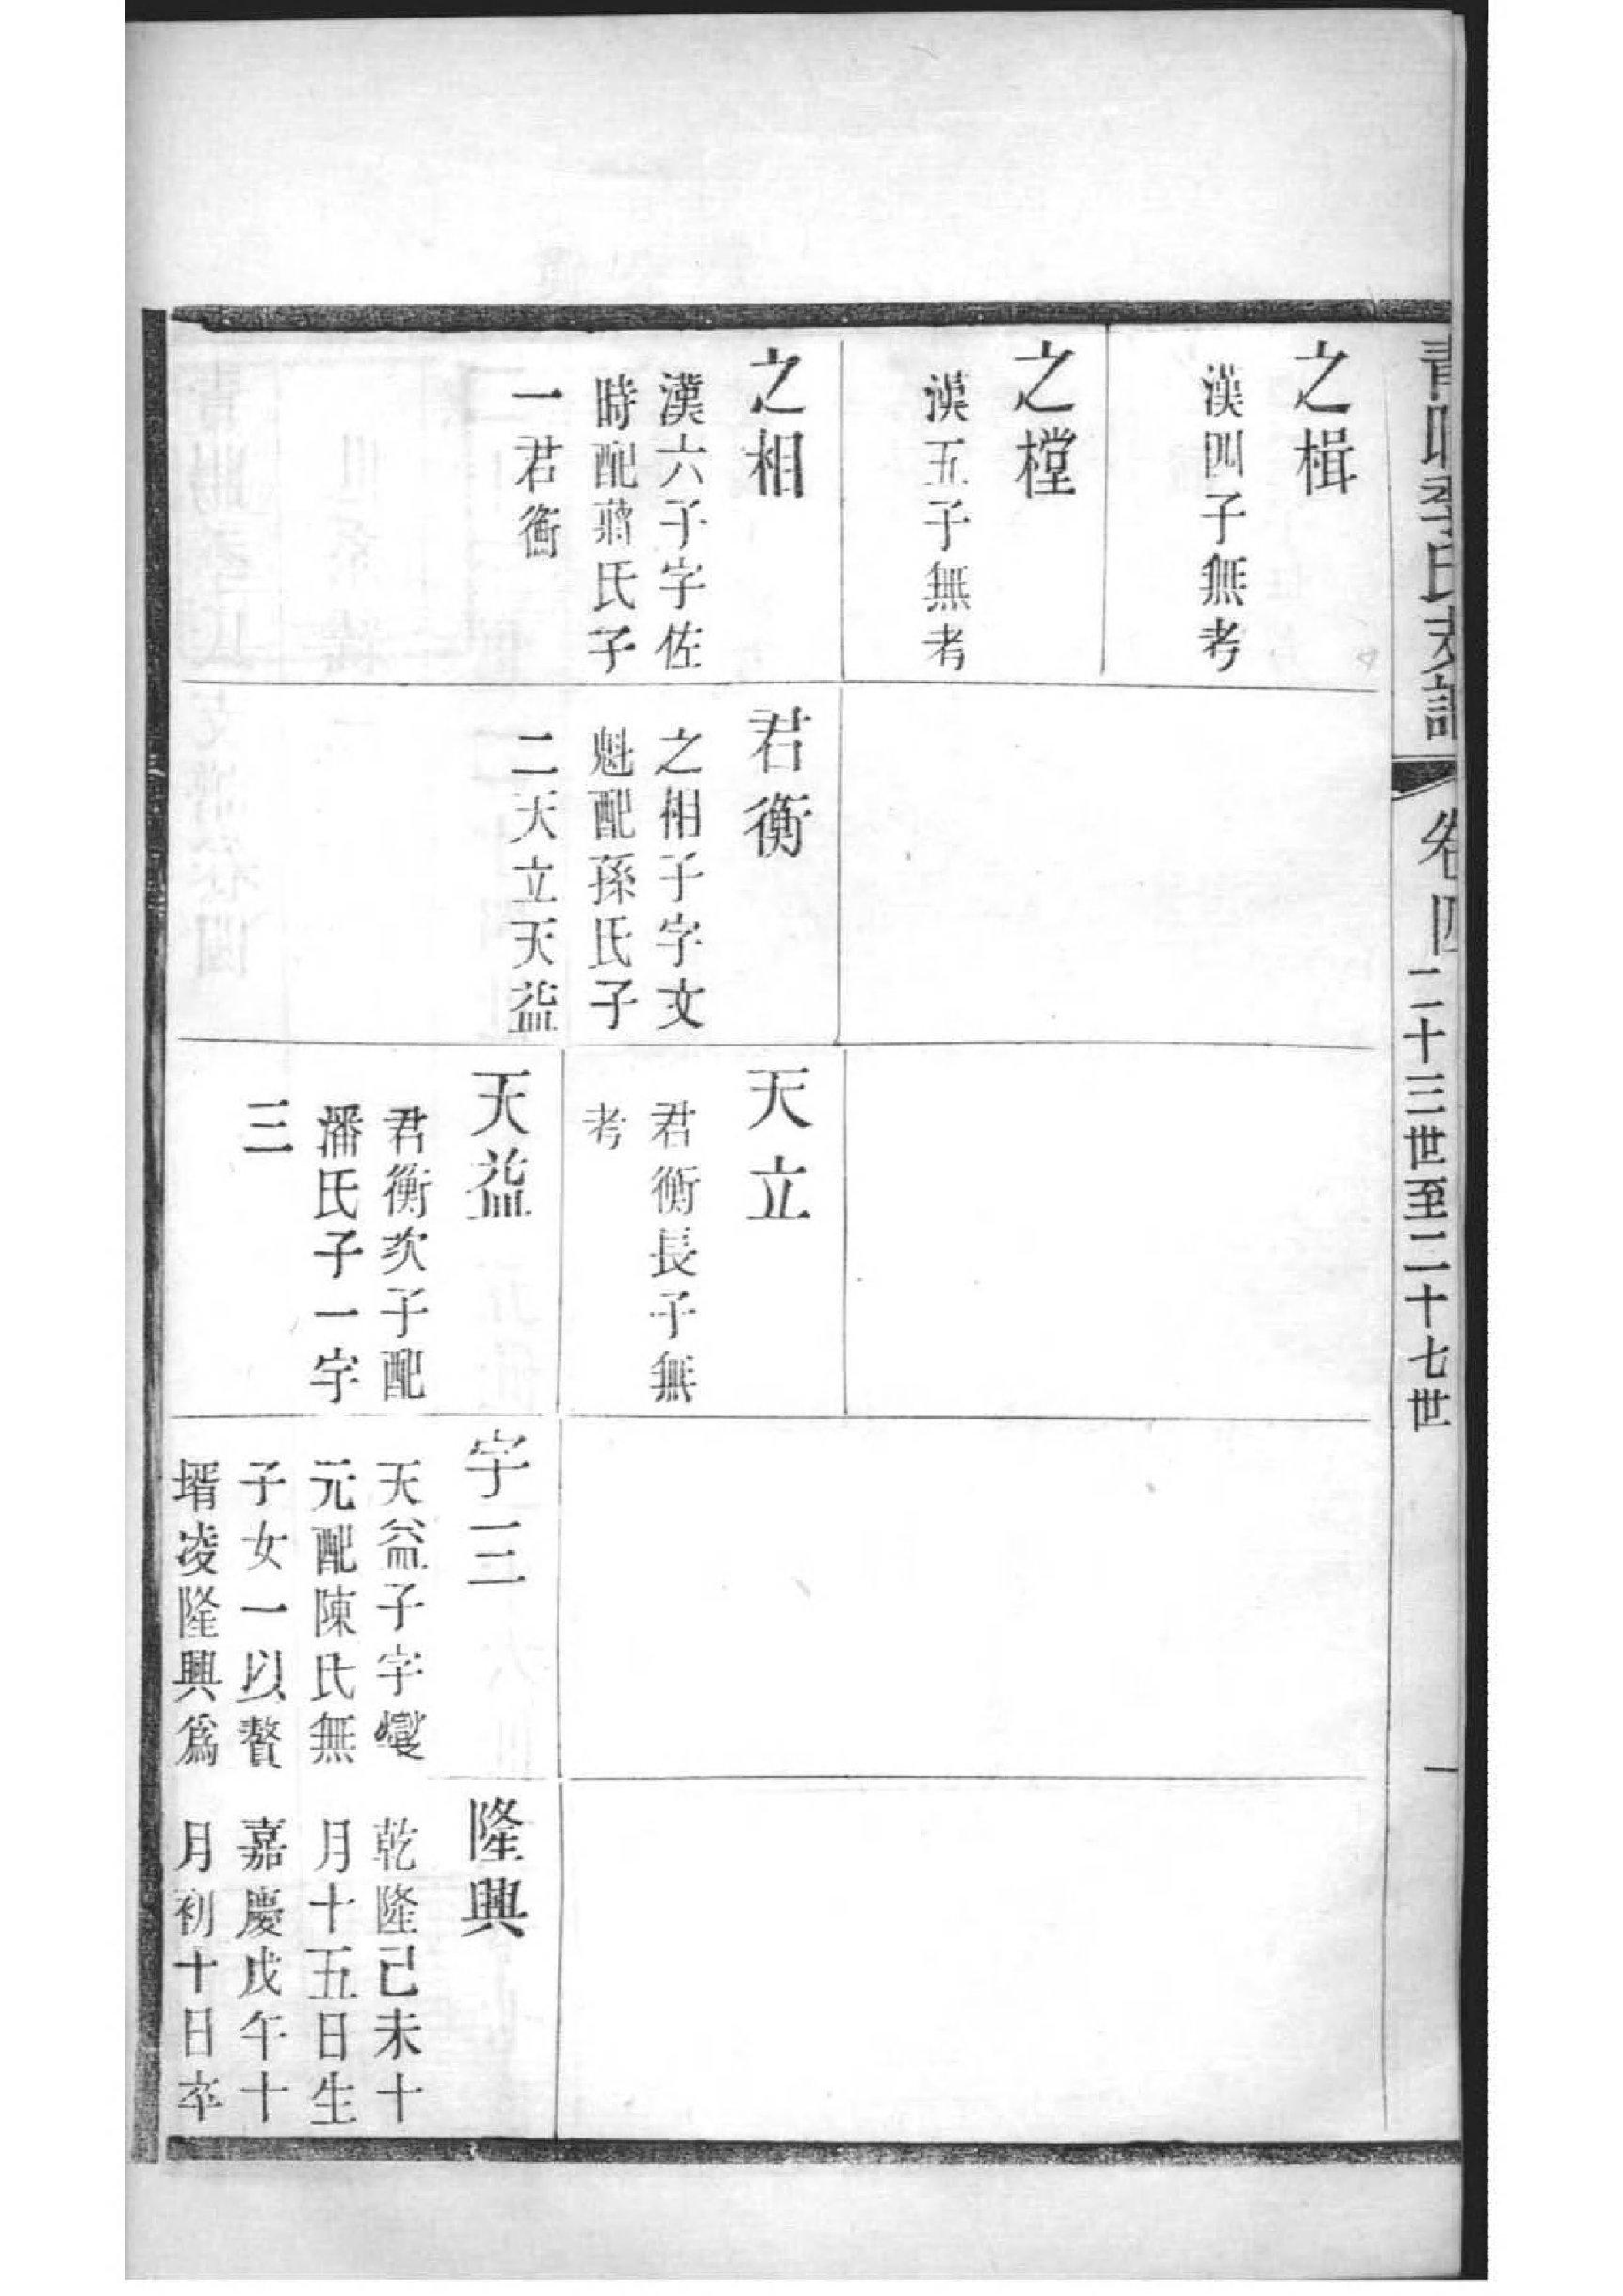 青陽李氏支譜
卷四
二十三世至二十七世
一
之楫
漢四子無考
之樘
漢五子無考
之相
漢六子字佐
時配蔣氏子
一君衡
君衡
之相子字文
魁配孫氏子
二天立天益
天立
君衡長子無
考
天益
君衡次子配
潘氏子一字
三
字三
天益子字燮
元配陳氏無
子女一以贅
壻凌隆興爲
隆興
乾隆己未十
月十五日生
嘉慶戊午十
月初十日卒